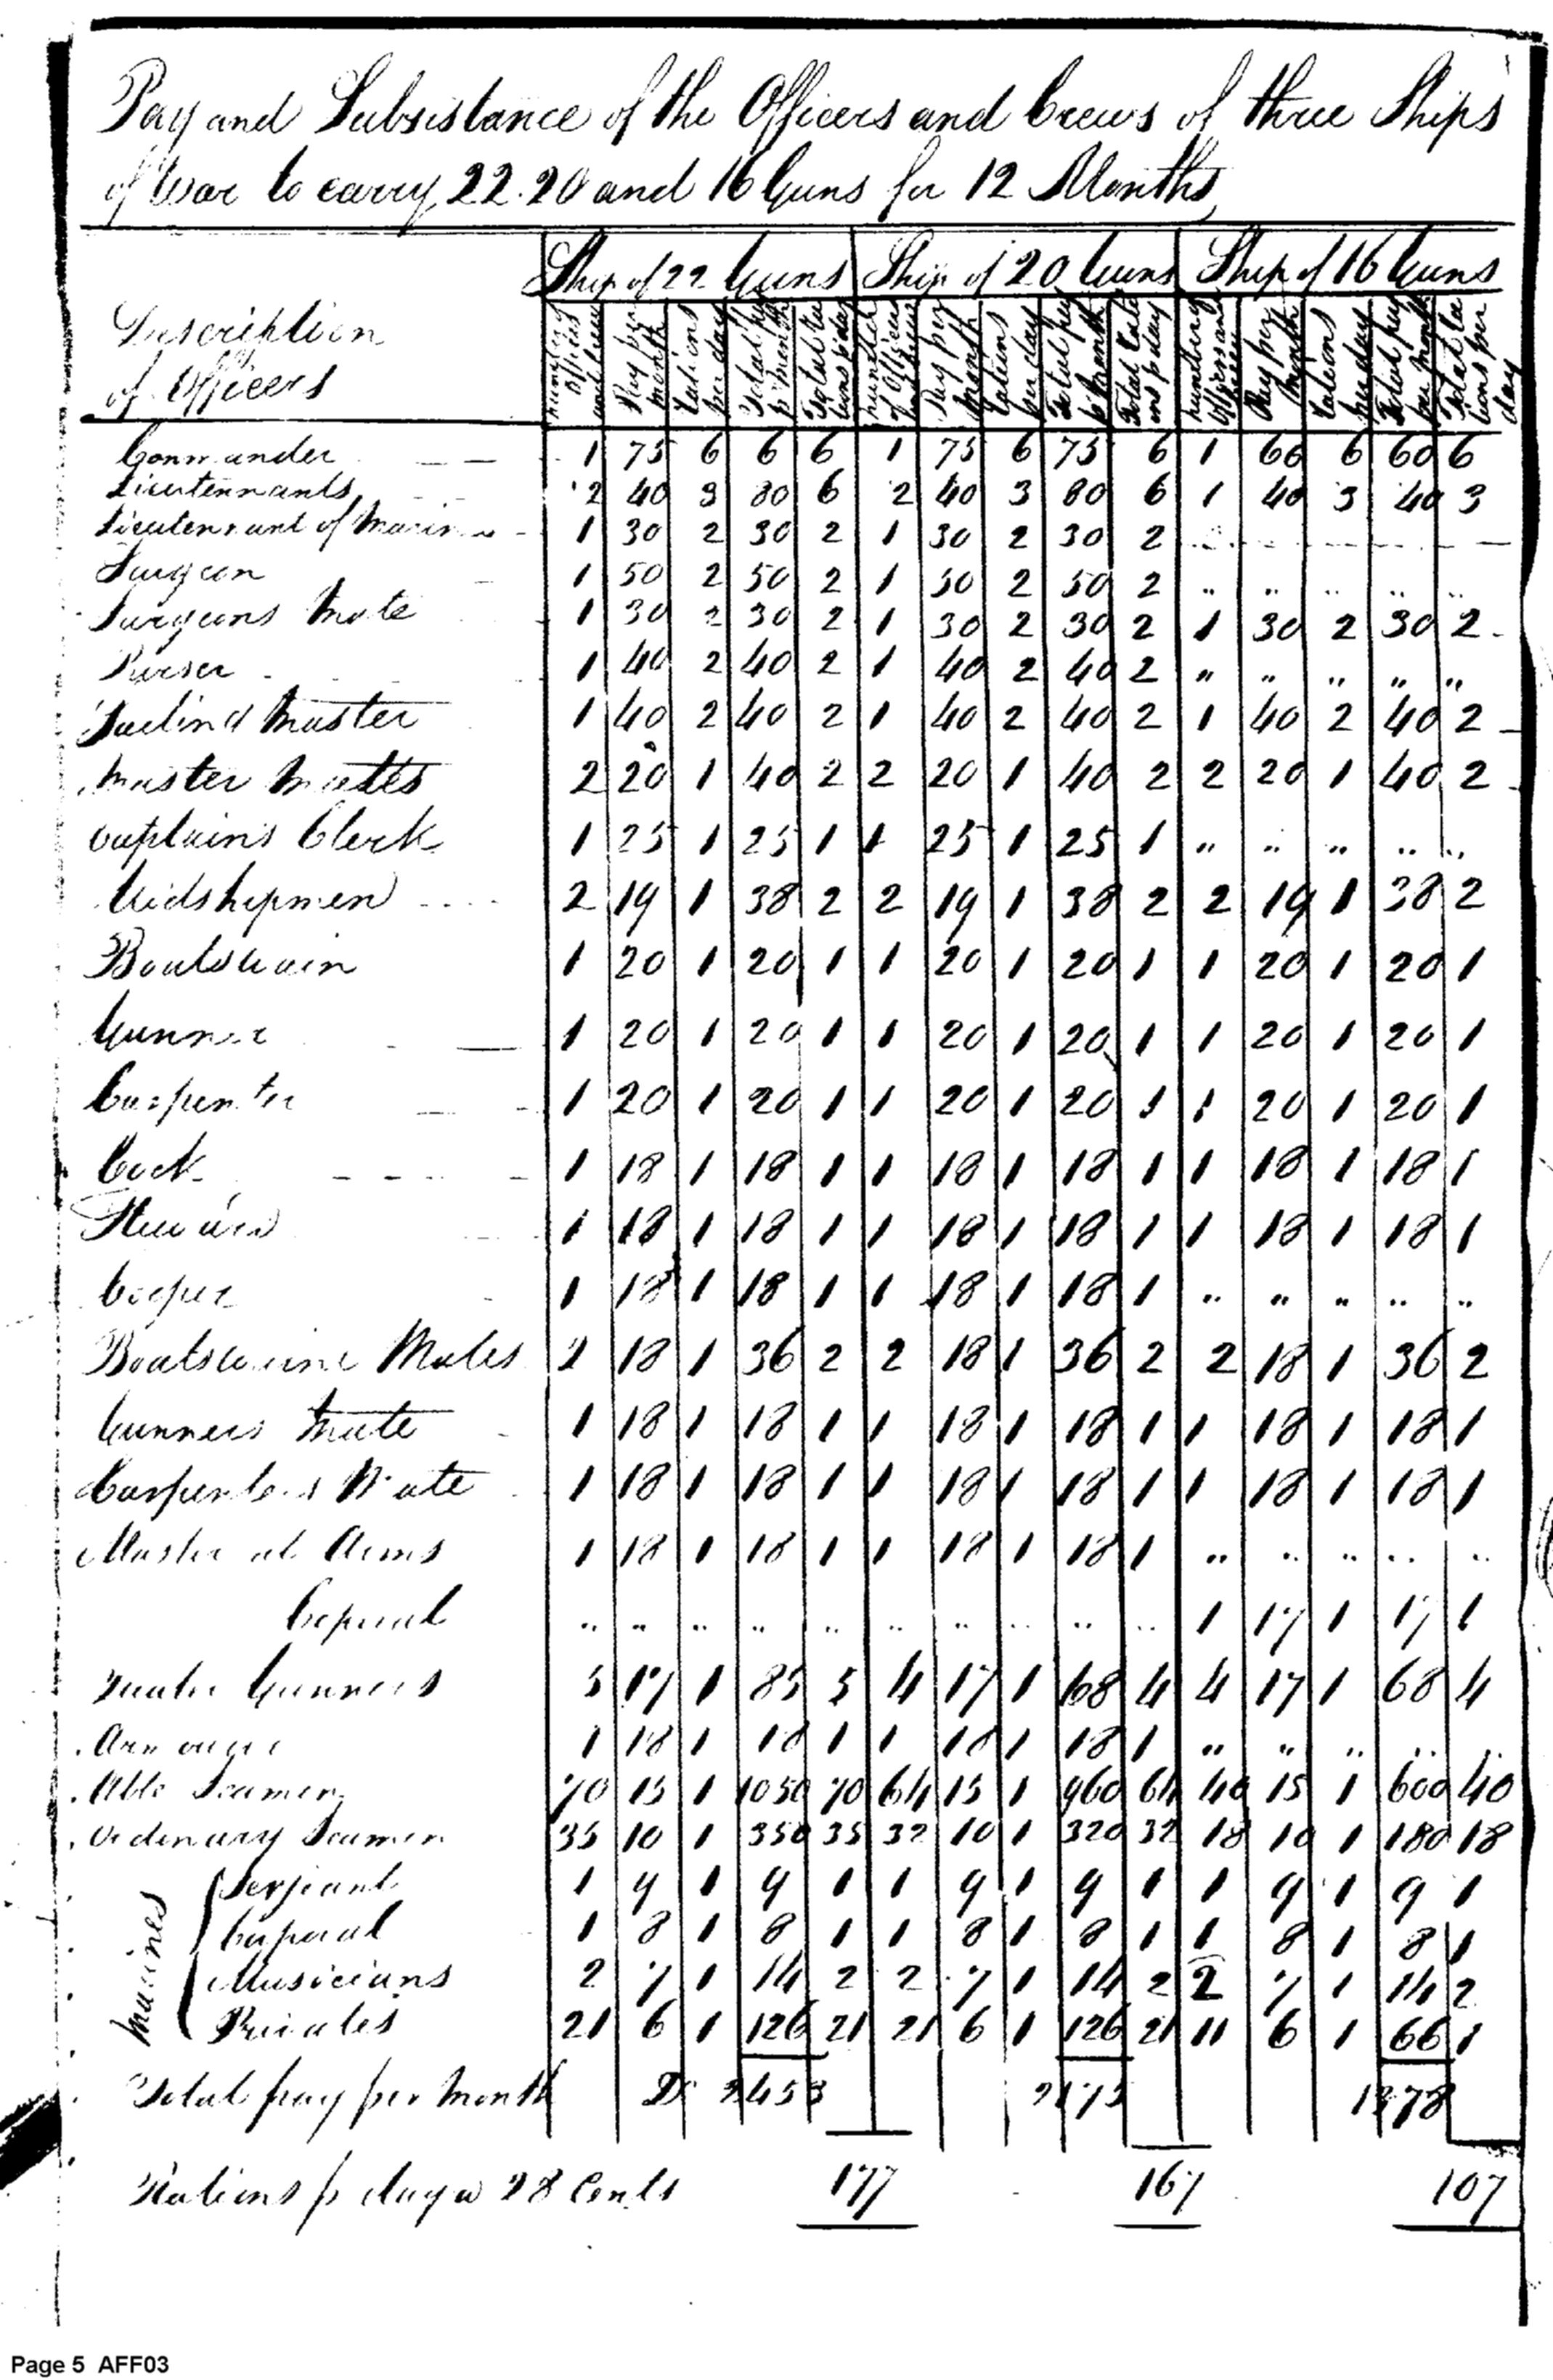 Pay and Subsistance of the Officers and Crews of three Ships
of War to carry 22. 20 and 16 Guns for 12 Months
Ship of 22 Guns Ship of 20 Guns Ship of 16 Guns
Description
of Officers
number of Officers and Crew Pay per month rations per day Total pay p month Total rations p day number of Officers Pay per month rations per day Total pay p month Total rations p day number Officers and Crew Pay per Month rations per day Total pay per month Total rations per day
Commander 1 75 6 6 6 1 75 6 75 6 1 60 6 60 6
Lieutennants 2 40 3 80 6 2 40 3 80 6 1 40 3 40 3
Lieutennant of Marines 1 30 2 30 2 1 30 2 30 2
Surgeon 1 50 2 50 2 1 50 2 50 2 " " " " "
Surgeons Mate 1 30 2 30 2 1 30 2 30 2 1 30 2 30 2
Purser 1 40 2 40 2 1 40 2 40 2 " " " " "
Sailing Master 1 40 2 40 2 1 40 2 40 2 1 40 2 40 2
Master Mates 2 20 1 40 2 2 20 1 40 2 2 20 1 40 2
Captains Clerk 1 25 1 25 1 1 25 1 25 1 " " " " "
Midshipmen 2 19 1 38 2 2 19 1 38 2 2 19 1 38 2
Boatswain 1 20 1 20 1 1 20 1 20 1 1 20 1 20 1
Gunner 1 20 1 20 1 1 20 1 20 1 1 20 1 20 1
Carpenter 1 20 1 20 1 1 20 1 20 1 1 20 1 20 1
Cook 1 18 1 18 1 1 18 1 18 1 1 18 1 18 1
Steward 1 18 1 18 1 1 18 1 18 1 1 18 1 18 1
Cooper 1 18 1 18 1 1 18 1 18 1 " " " " "
Boatswains Mates 2 18 1 36 2 2 18 1 36 2 2 18 1 36 2
Gunners Mate 1 18 1 18 1 1 18 1 18 1 1 18 1 18 1
Carpenters Mate 1 18 1 18 1 1 18 1 18 1 1 18 1 18 1
Master at Arms 1 18 1 18 1 1 18 1 18 1 " " " " "
Corporal " " " " " " " " " " 1 17 1 17 1
Quater Gunners 5 17 1 85 5 4 17 1 68 4 4 17 1 68 4
Armourer 1 18 1 18 1 1 18 1 18 1 " " " " "
Able Seamen 70 15 1 1050 70 64 15 1 960 64 40 15 1 600 40
Ordinary Seamen 35 10 1 350 35 32 10 1 320 32 18 10 1 180 18
Marines
Serjeant 1 9 1 9 1 1 9 1 9 1 1 9 1 9 1
Corporal 1 8 1 8 1 1 8 1 8 1 1 8 1 8 1
Musicians 2 7 1 14 2 2 7 1 14 2 2 7 1 14 2
Privates 21 6 1 126 21 21 6 1 126 21 11 6 1 66 1
Total pay per Month 2453 1378
Rations p day @ 28 Cents 177 167 107
Page 5 AFF03